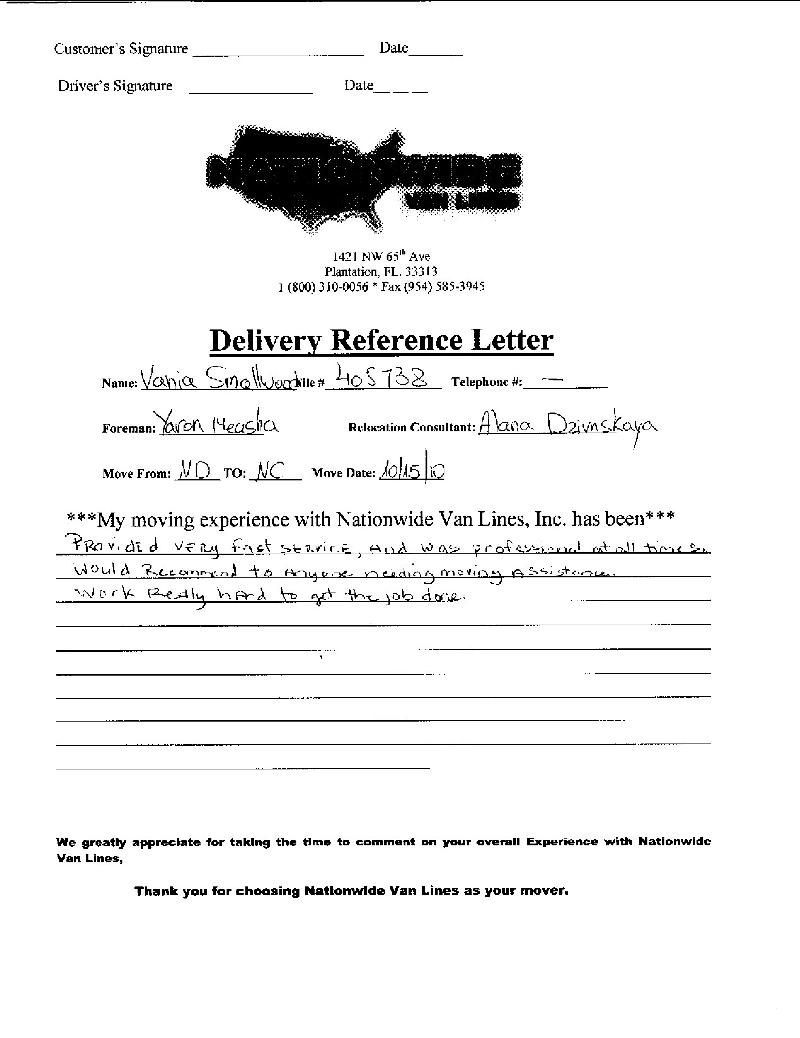 Customer's Signature Date
Driver's Signature Date
NATIONWIDE
VAN LINES
1421 NW 65th Ave
Plantation, FL. 33313
1 (800) 310-0056 * Fax (954) 585-3945
Delivery Reference Letter
Name: Vania Smallwood File # 405738 Telephone #: —
Foreman: Yaron Measha Relocation Consultant: Alana Dzivnskaya
Move From: MD TO: NC Move Date: 10/15/10
***My moving experience with Nationwide Van Lines, Inc. has been***
Provided very fast service, and was professional at all times.
Would Recommend to Anyone needing moving Assistance.
Work Really hard to get the job done.
We greatly appreciate for taking the time to comment on your overall Experience with Nationwide
Van Lines,
Thank you for choosing Nationwide Van Lines as your mover.